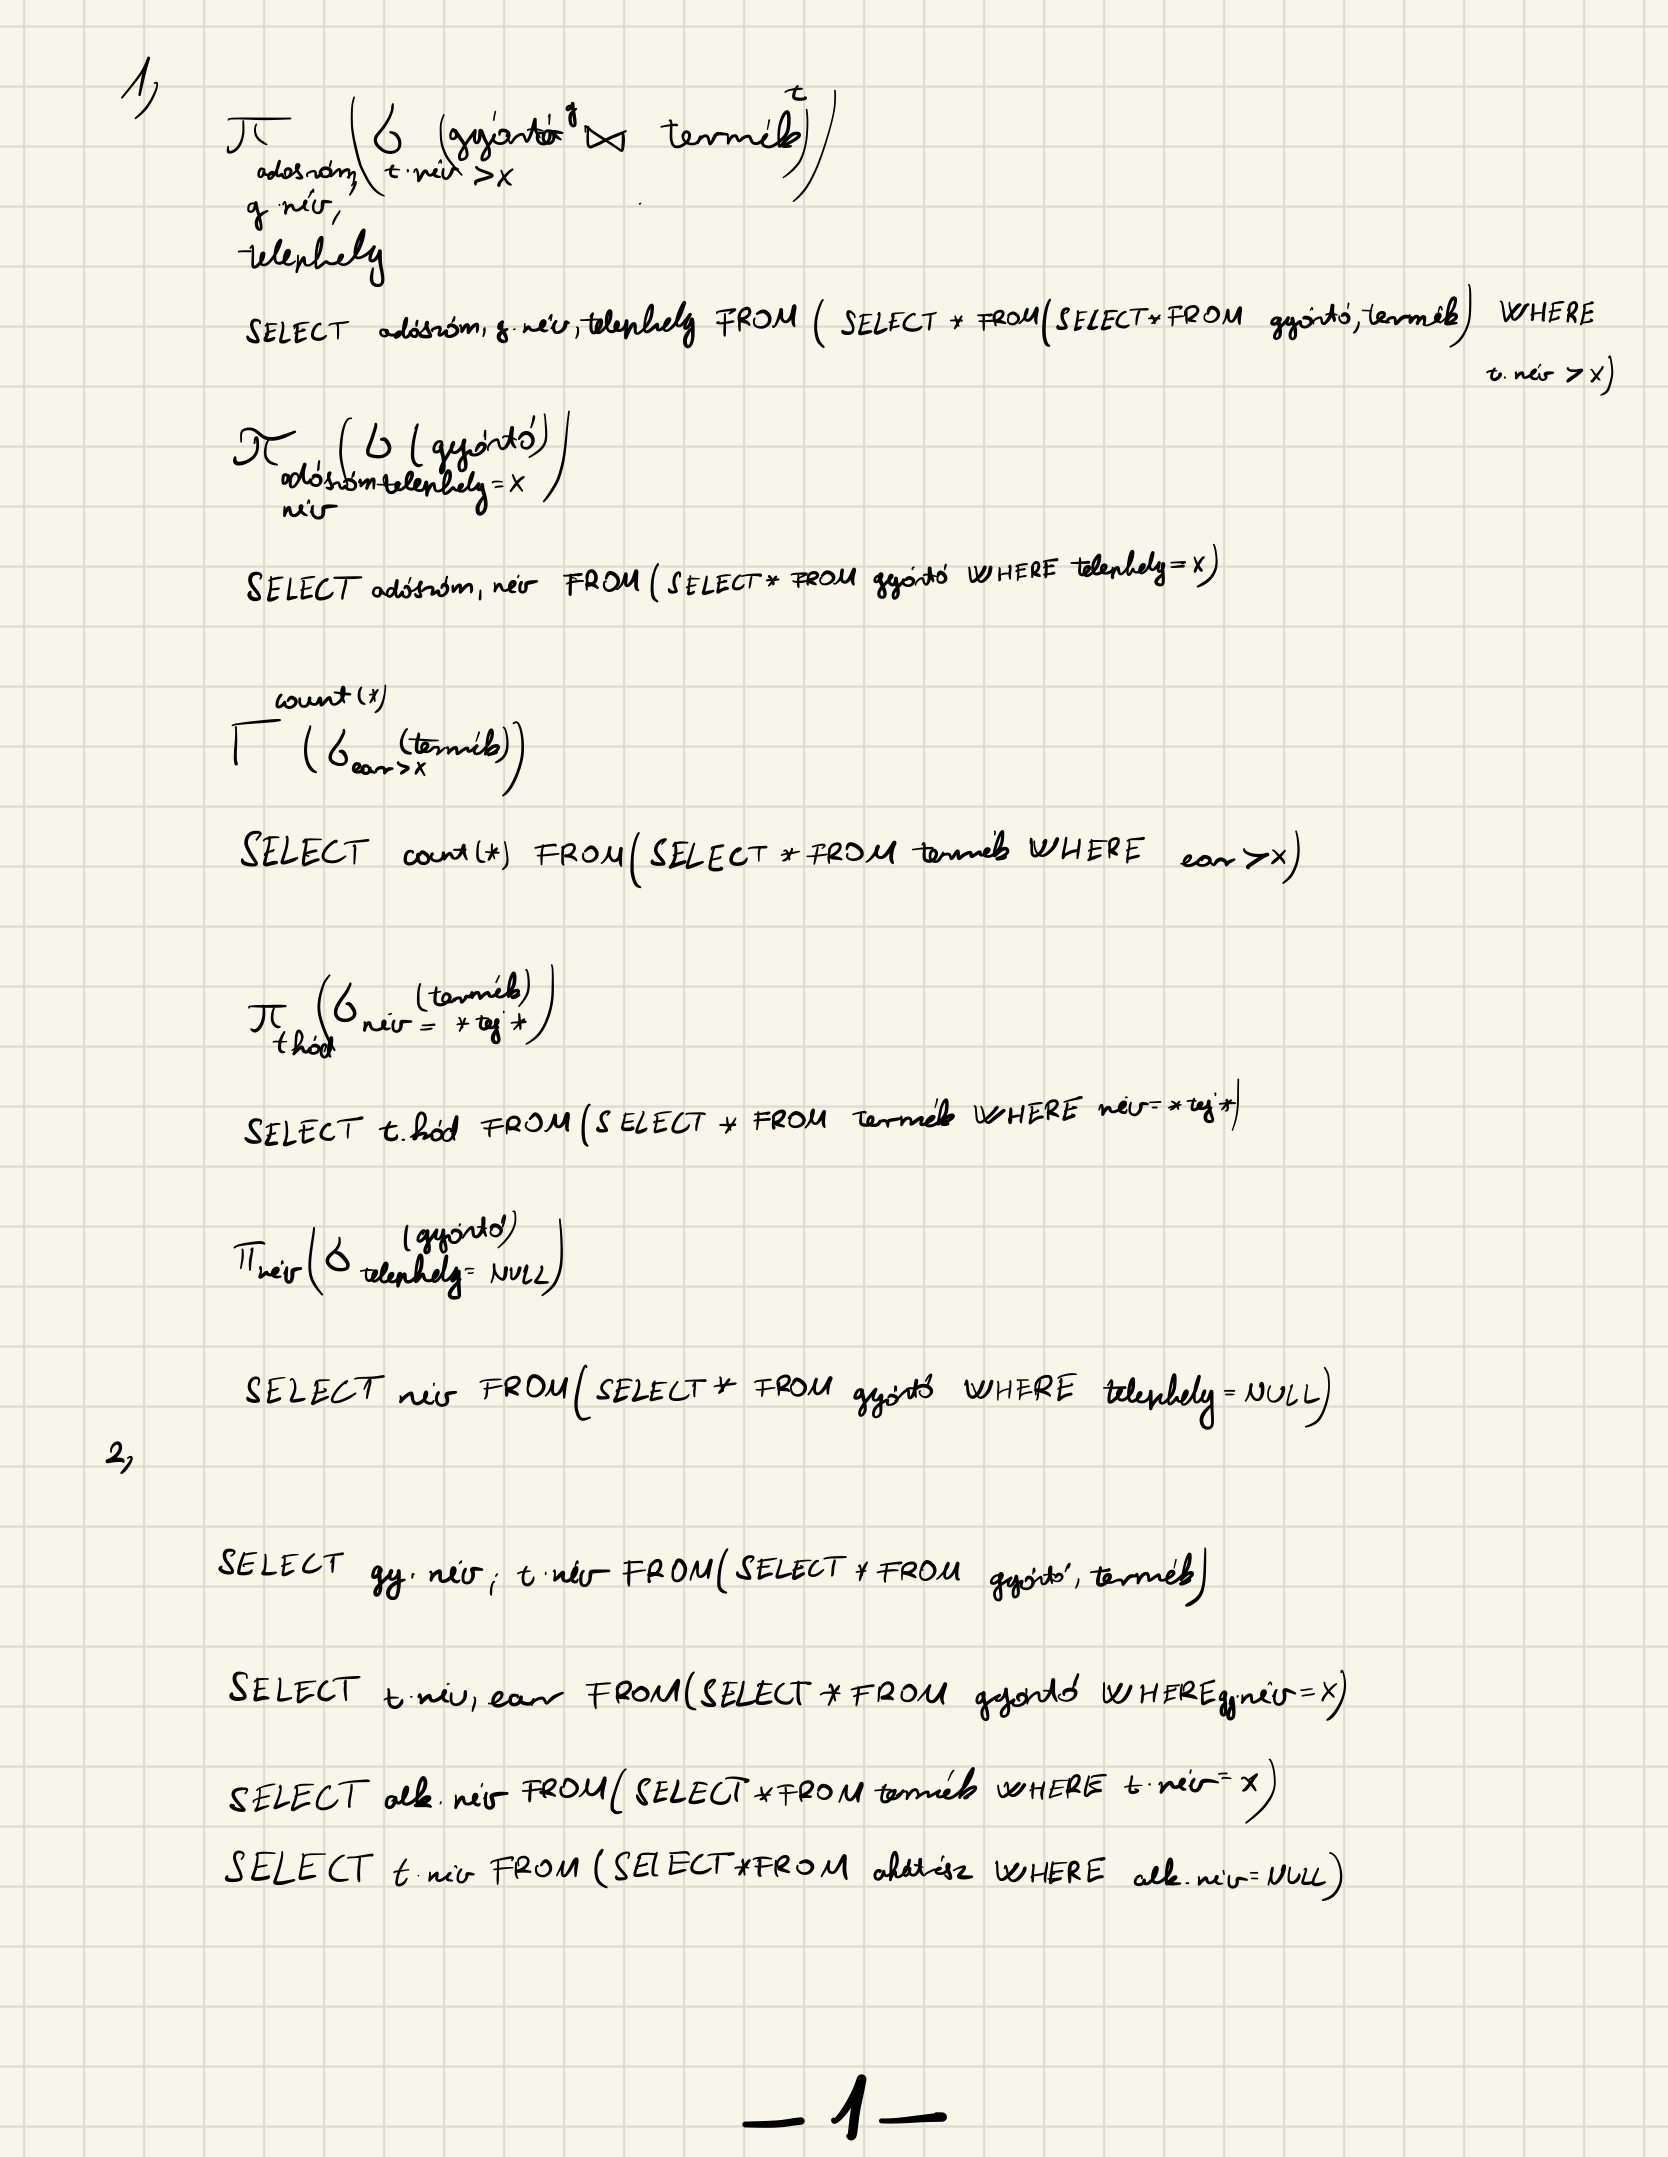 1,
π adószám, g.név, telephely (σ t.név > x (gyártó g ⋈ termék t))
SELECT adószám, g.név, telephely FROM ( SELECT * FROM(SELECT * FROM gyártó, termék) WHERE
t.név > x)
π adószám név (σ telephely = x (gyártó))
SELECT adószám, név FROM (SELECT * FROM gyártó WHERE telephely = x)
Γ count(*) (σ ear > x (termék))
SELECT count(*) FROM(SELECT * FROM termék WHERE ear > x)
π tkód (σ név = *tej* (termék))
SELECT t.kód FROM (SELECT * FROM termék WHERE név = *tej*)
π név (σ telephely = NULL (gyártó))
SELECT név FROM(SELECT * FROM gyártó WHERE telephely = NULL)
2,
SELECT gy.név, t.név FROM(SELECT * FROM gyártó, termék)
SELECT t.név, ear FROM(SELECT * FROM gyártó WHERE gy.név = x)
SELECT alk.név FROM(SELECT * FROM termék WHERE t.név = x)
SELECT t.név FROM (SELECT * FROM alkatrész WHERE alk.név = NULL)
— 1 —